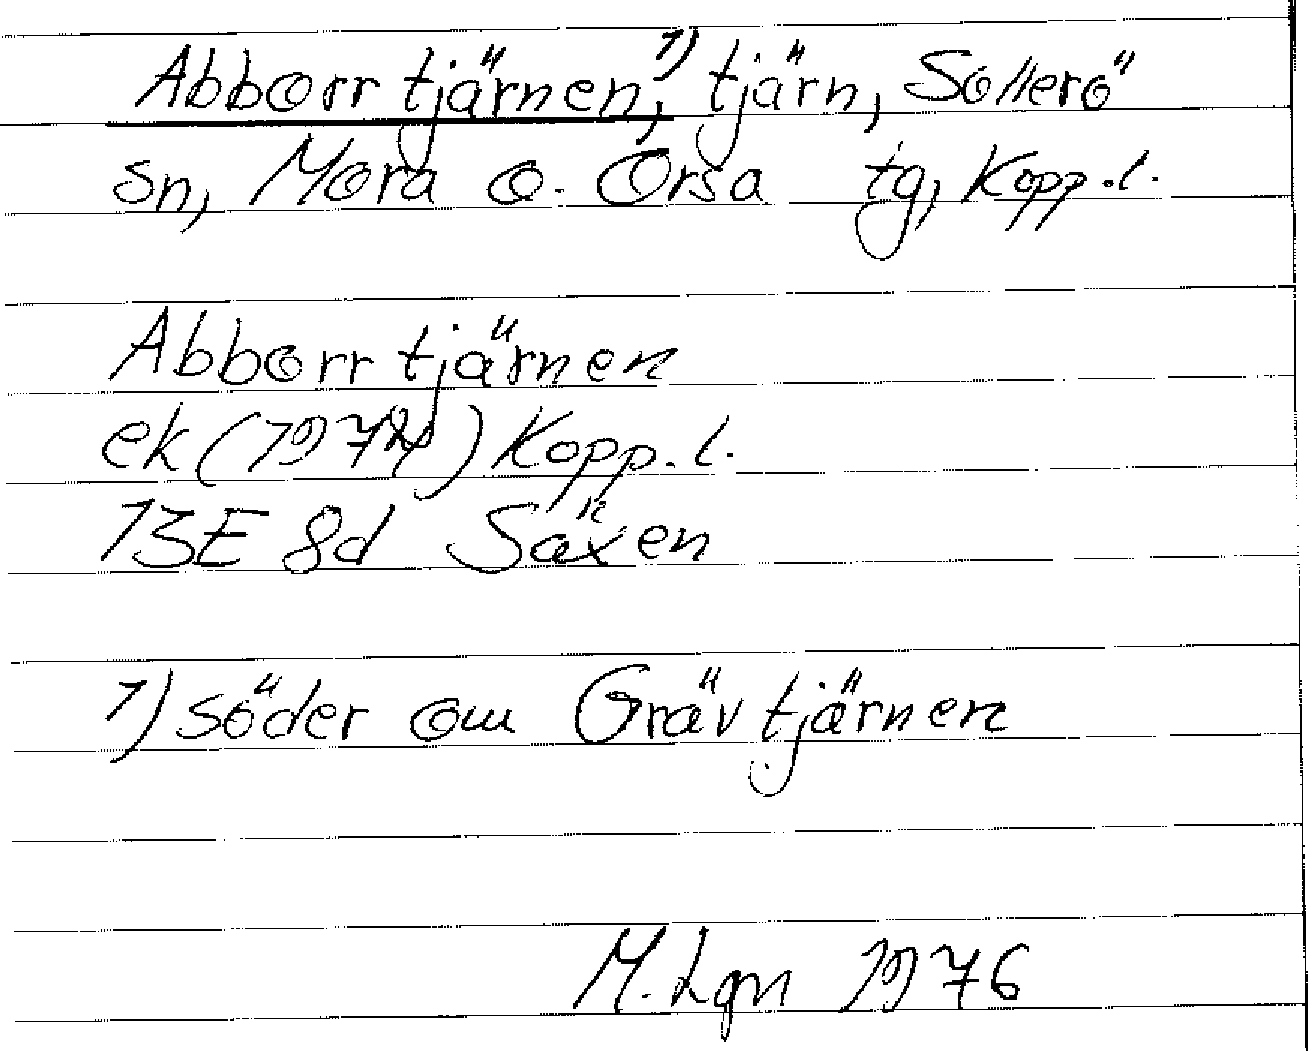 Abborrtjärnen,¹⁾ tjärn, Sollerö
sn, Mora o. Orsa tg, Kopp.l.
Abborrtjärnen
ek (1974) Kopp.l.
13E 8d Säxen
1) söder om Grävtjärnen
M. Lgn 1976